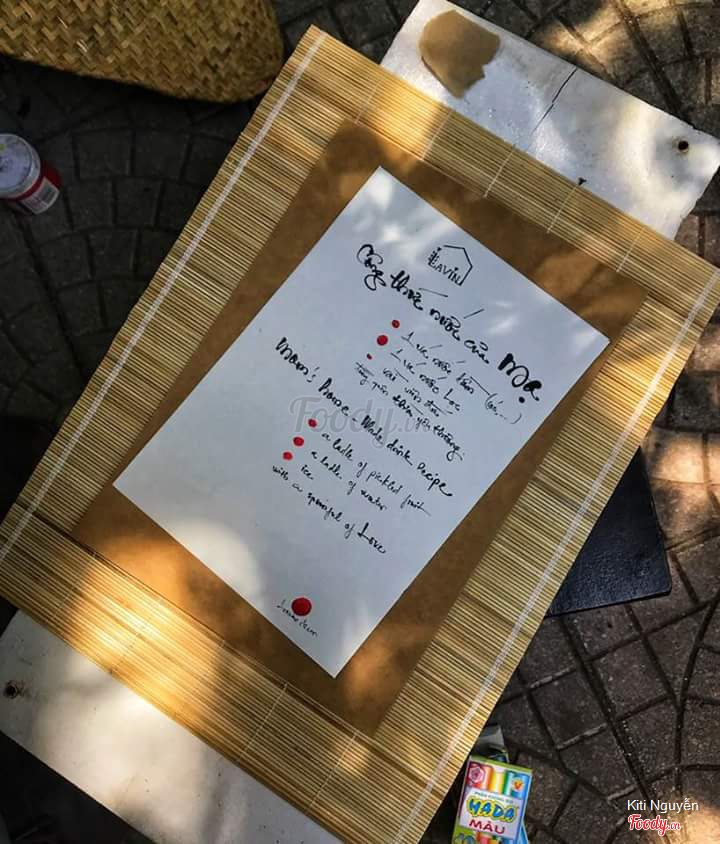 LAVIN
Công thức nước của Mạ
1 vá nước
1 vá nước lọc
vài viên đá
thìa yêu thương
Mom's Home Made drink recipe
a ladle of pickled fruit
a ladle of water
ice
with a spoonful of Love
Foody.vn
MÀU
Kiti Nguyễn
Foody.vn